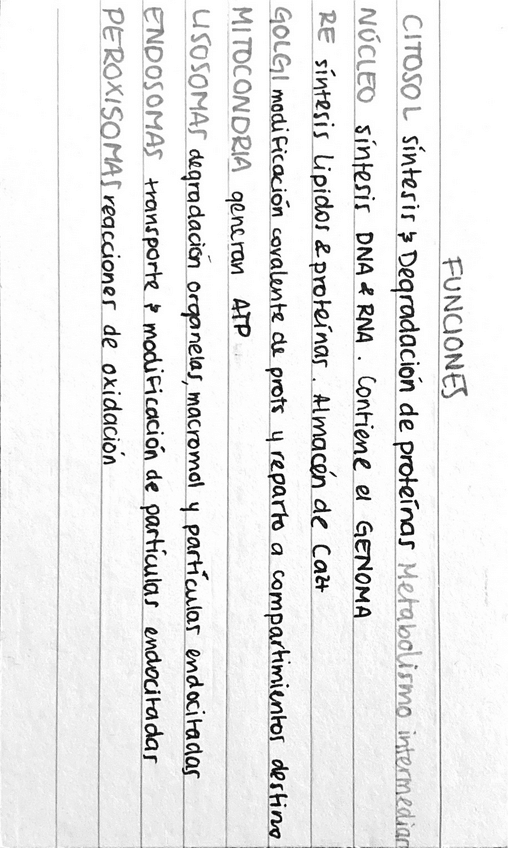 FUNCIONES
CITOSOL síntesis & Degradación de proteínas Metabolismo intermediar
NÚCLEO síntesis DNA & RNA. Contiene el GENOMA
RE síntesis lipidos & proteínas. Almacén de Ca2+
GOLGI modificación covalente de prots y reparto a compartimientos destino
MITOCONDRIA generan ATP
LISOSOMAS degradación organelas, macromol y partículas endocitadas
ENDOSOMAS transporte & modificación de partículas endocitadas
PEROXISOMAS reacciones de oxidación